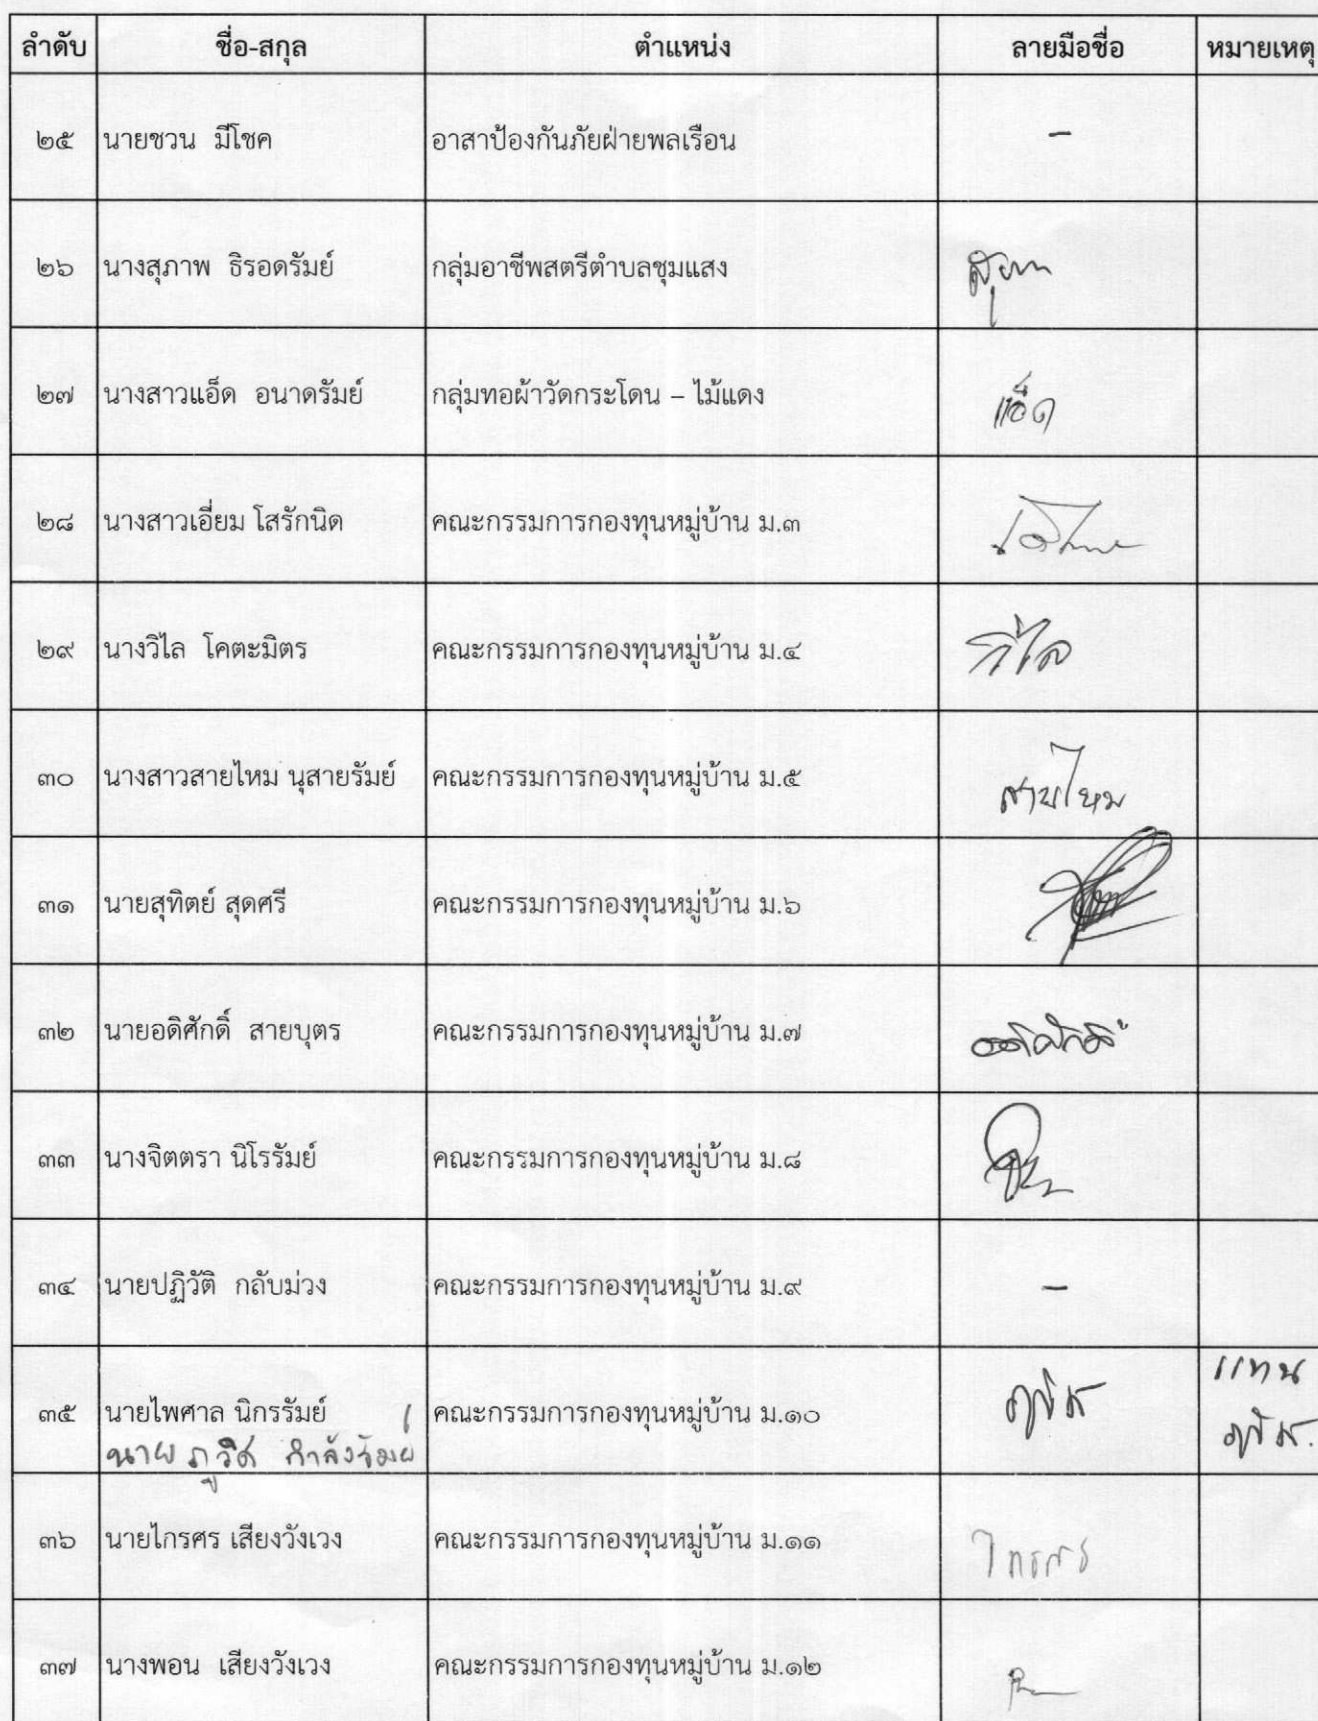 ลำดับ ชื่อ-สกุล ตำแหน่ง ลายมือชื่อ หมายเหตุ
๒๕ นายชวน มีโชค อาสาป้องกันภัยฝ่ายพลเรือน -
๒๖ นางสุภาพ ธิรอดรัมย์ กลุ่มอาชีพสตรีตำบลชุมแสง สุภาพ
๒๗ นางสาวแอ็ด อนาดรัมย์ กลุ่มทอผ้าวัดกระโดน – ไม้แดง แอ็ด
๒๘ นางสาวเอี่ยม โสรักนิด คณะกรรมการกองทุนหมู่บ้าน ม.๓
๒๙ นางวิไล โคตะมิตร คณะกรรมการกองทุนหมู่บ้าน ม.๔ วิไล
๓๐ นางสาวสายไหม นุสายรัมย์ คณะกรรมการกองทุนหมู่บ้าน ม.๕ สายไหม
๓๑ นายสุทิตย์ สุดศรี คณะกรรมการกองทุนหมู่บ้าน ม.๖
๓๒ นายอดิศักดิ์ สายบุตร คณะกรรมการกองทุนหมู่บ้าน ม.๗ อดิศักดิ์
๓๓ นางจิตตรา นิโรรัมย์ คณะกรรมการกองทุนหมู่บ้าน ม.๘
๓๔ นายปฏิวัติ กลับม่วง คณะกรรมการกองทุนหมู่บ้าน ม.๙ -
๓๕ นายไพศาล นิกรรัมย์ คณะกรรมการกองทุนหมู่บ้าน ม.๑๐ แทน
นาย กำลังรัมย์
๓๖ นายไกรศร เสียงวังเวง คณะกรรมการกองทุนหมู่บ้าน ม.๑๑ ไกรศร
๓๗ นางพอน เสียงวังเวง คณะกรรมการกองทุนหมู่บ้าน ม.๑๒